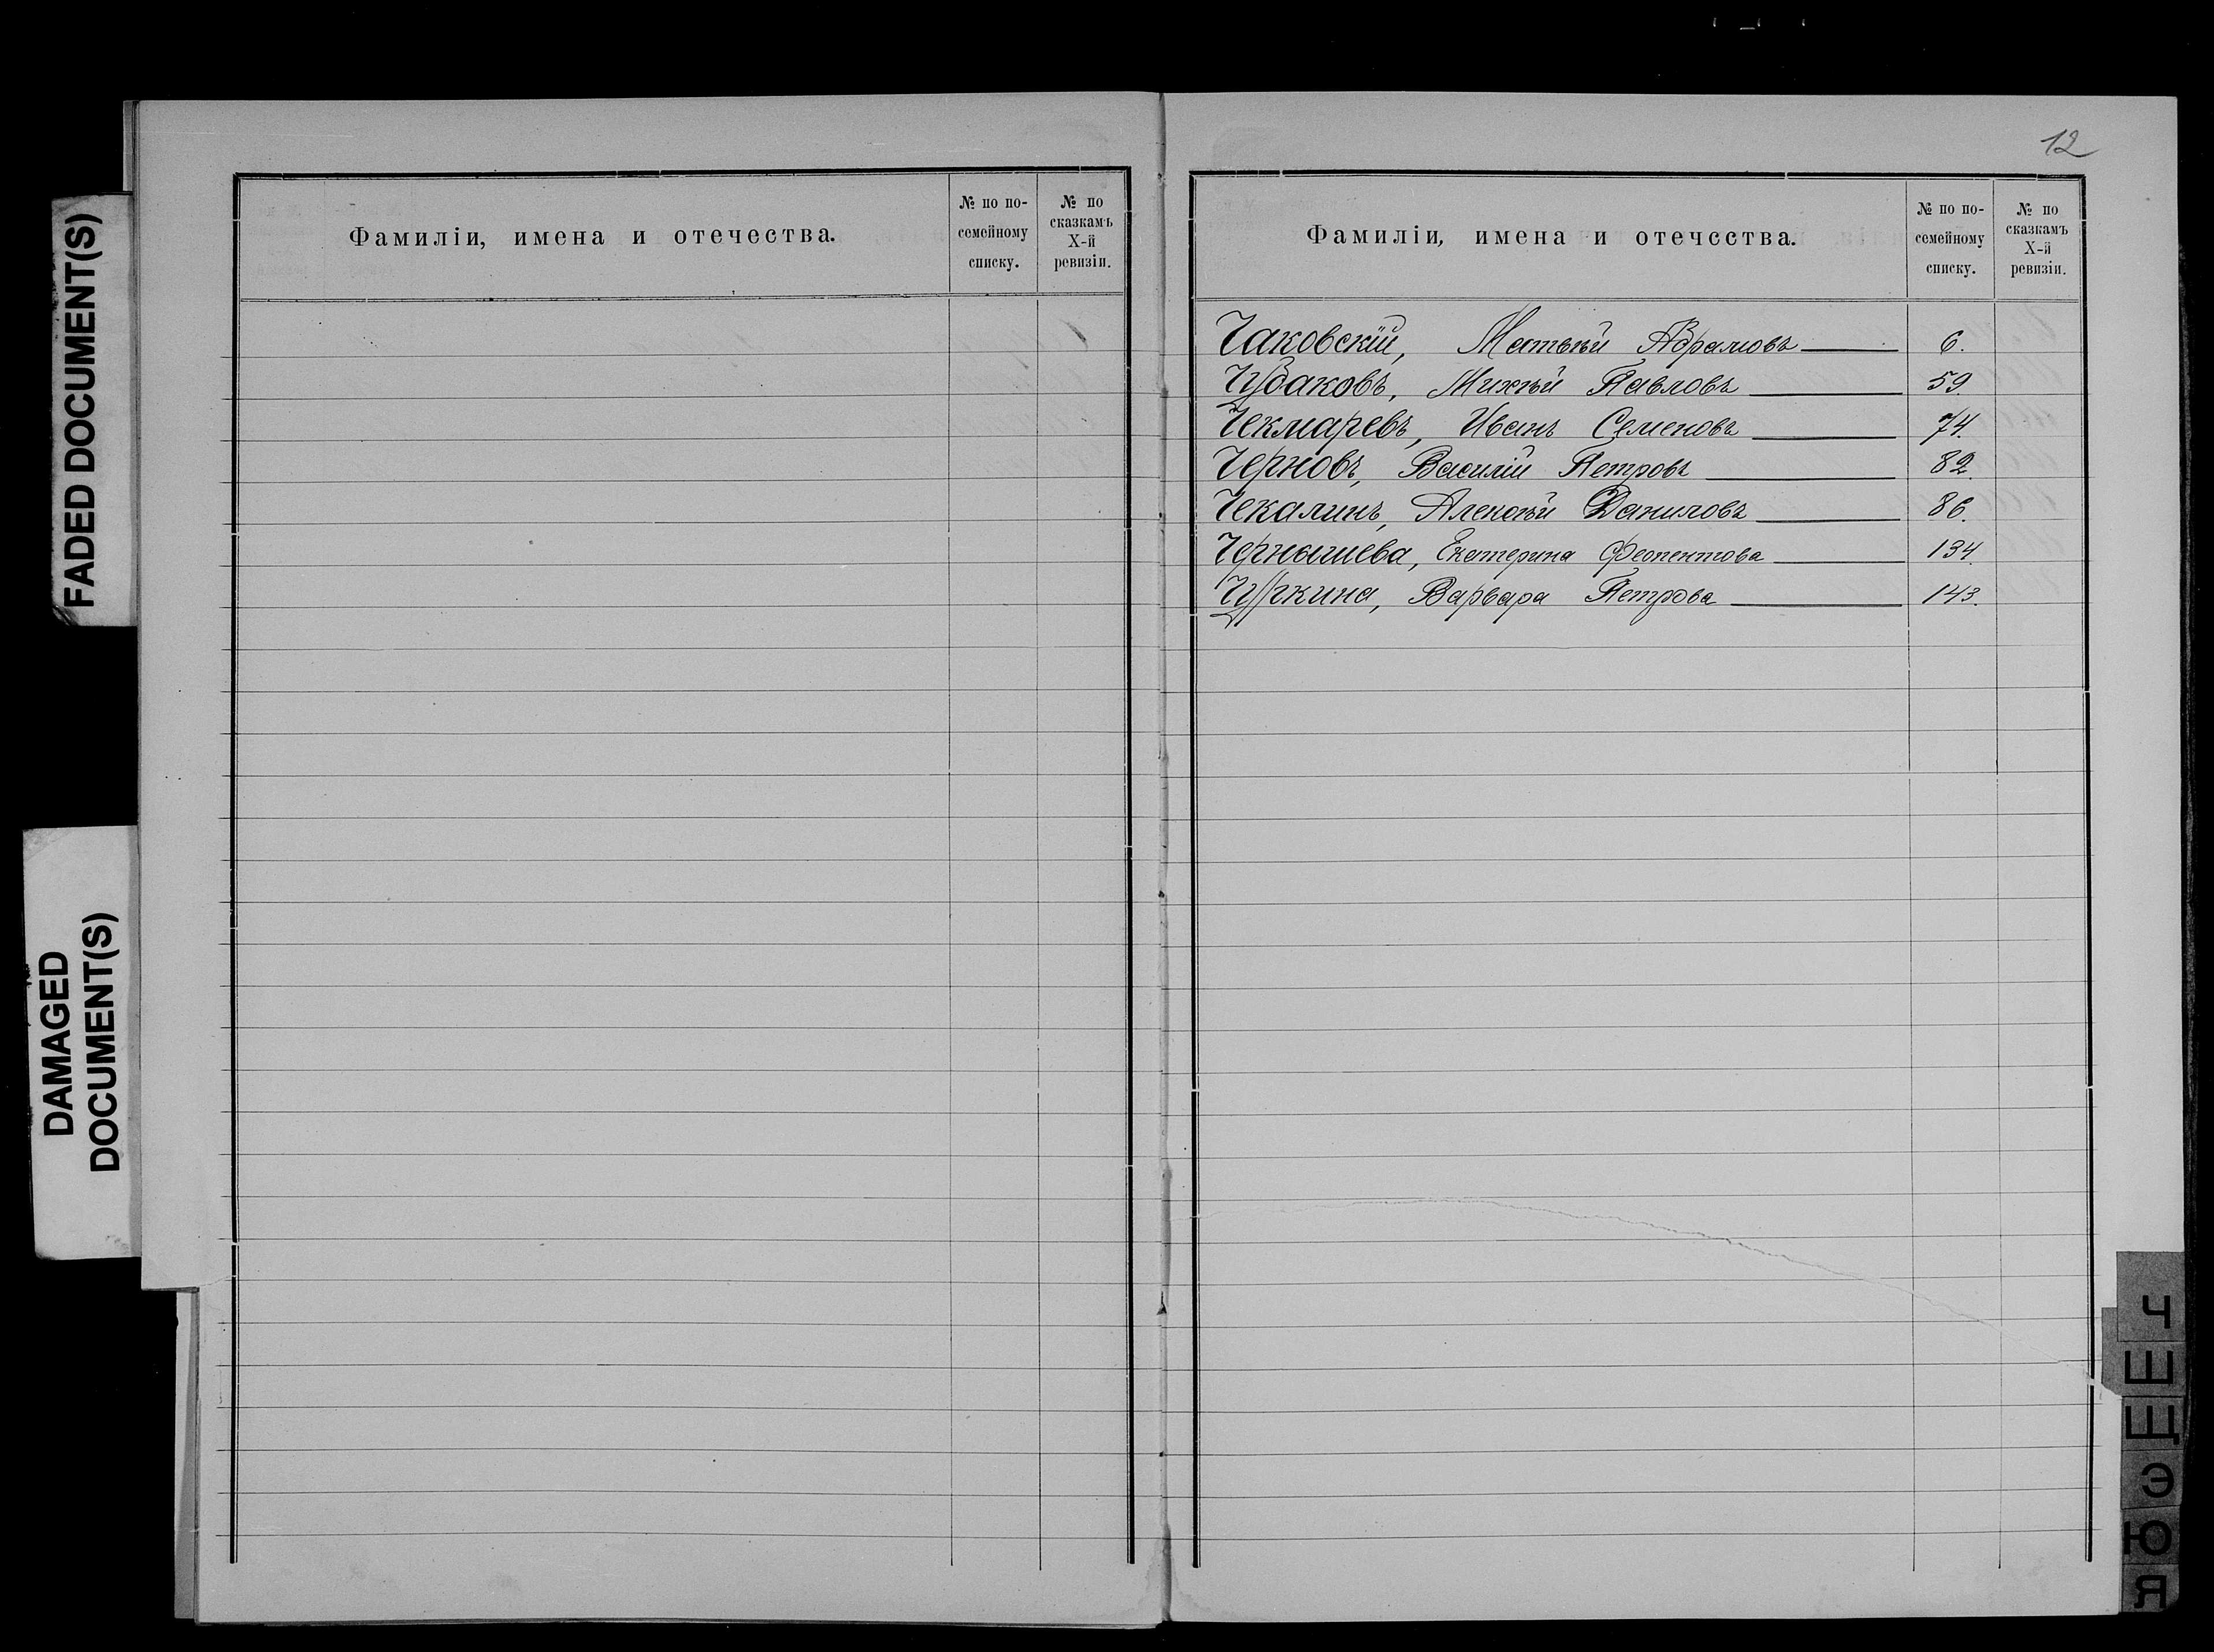 FADED DOCUMENT(S)
DAMAGED
DOCUMENT(S)
Фамиліи, имена и отечества.
№ по по-
семейному
списку.
№ по
сказкамъ
X-й
ревизіи.
12
Фамиліи, имена и отечества.
№ по по-
семейному
списку.
№ по
сказкамъ
X-й
ревизіи.
Чаковскій, Матвѣй Абрамовъ 6.
Чубаковъ, Михѣй Павловъ 59.
Чекмаревъ, Иванъ Семеновъ 74.
Черновъ, Василій Петровъ 82.
Чекалинъ, Алексѣй Даниловъ 86.
Чернышева, Екатерина 134.
Чуркина, Варвара Петрова 143.
Ч
Ш
Щ
Э
Ю
Я